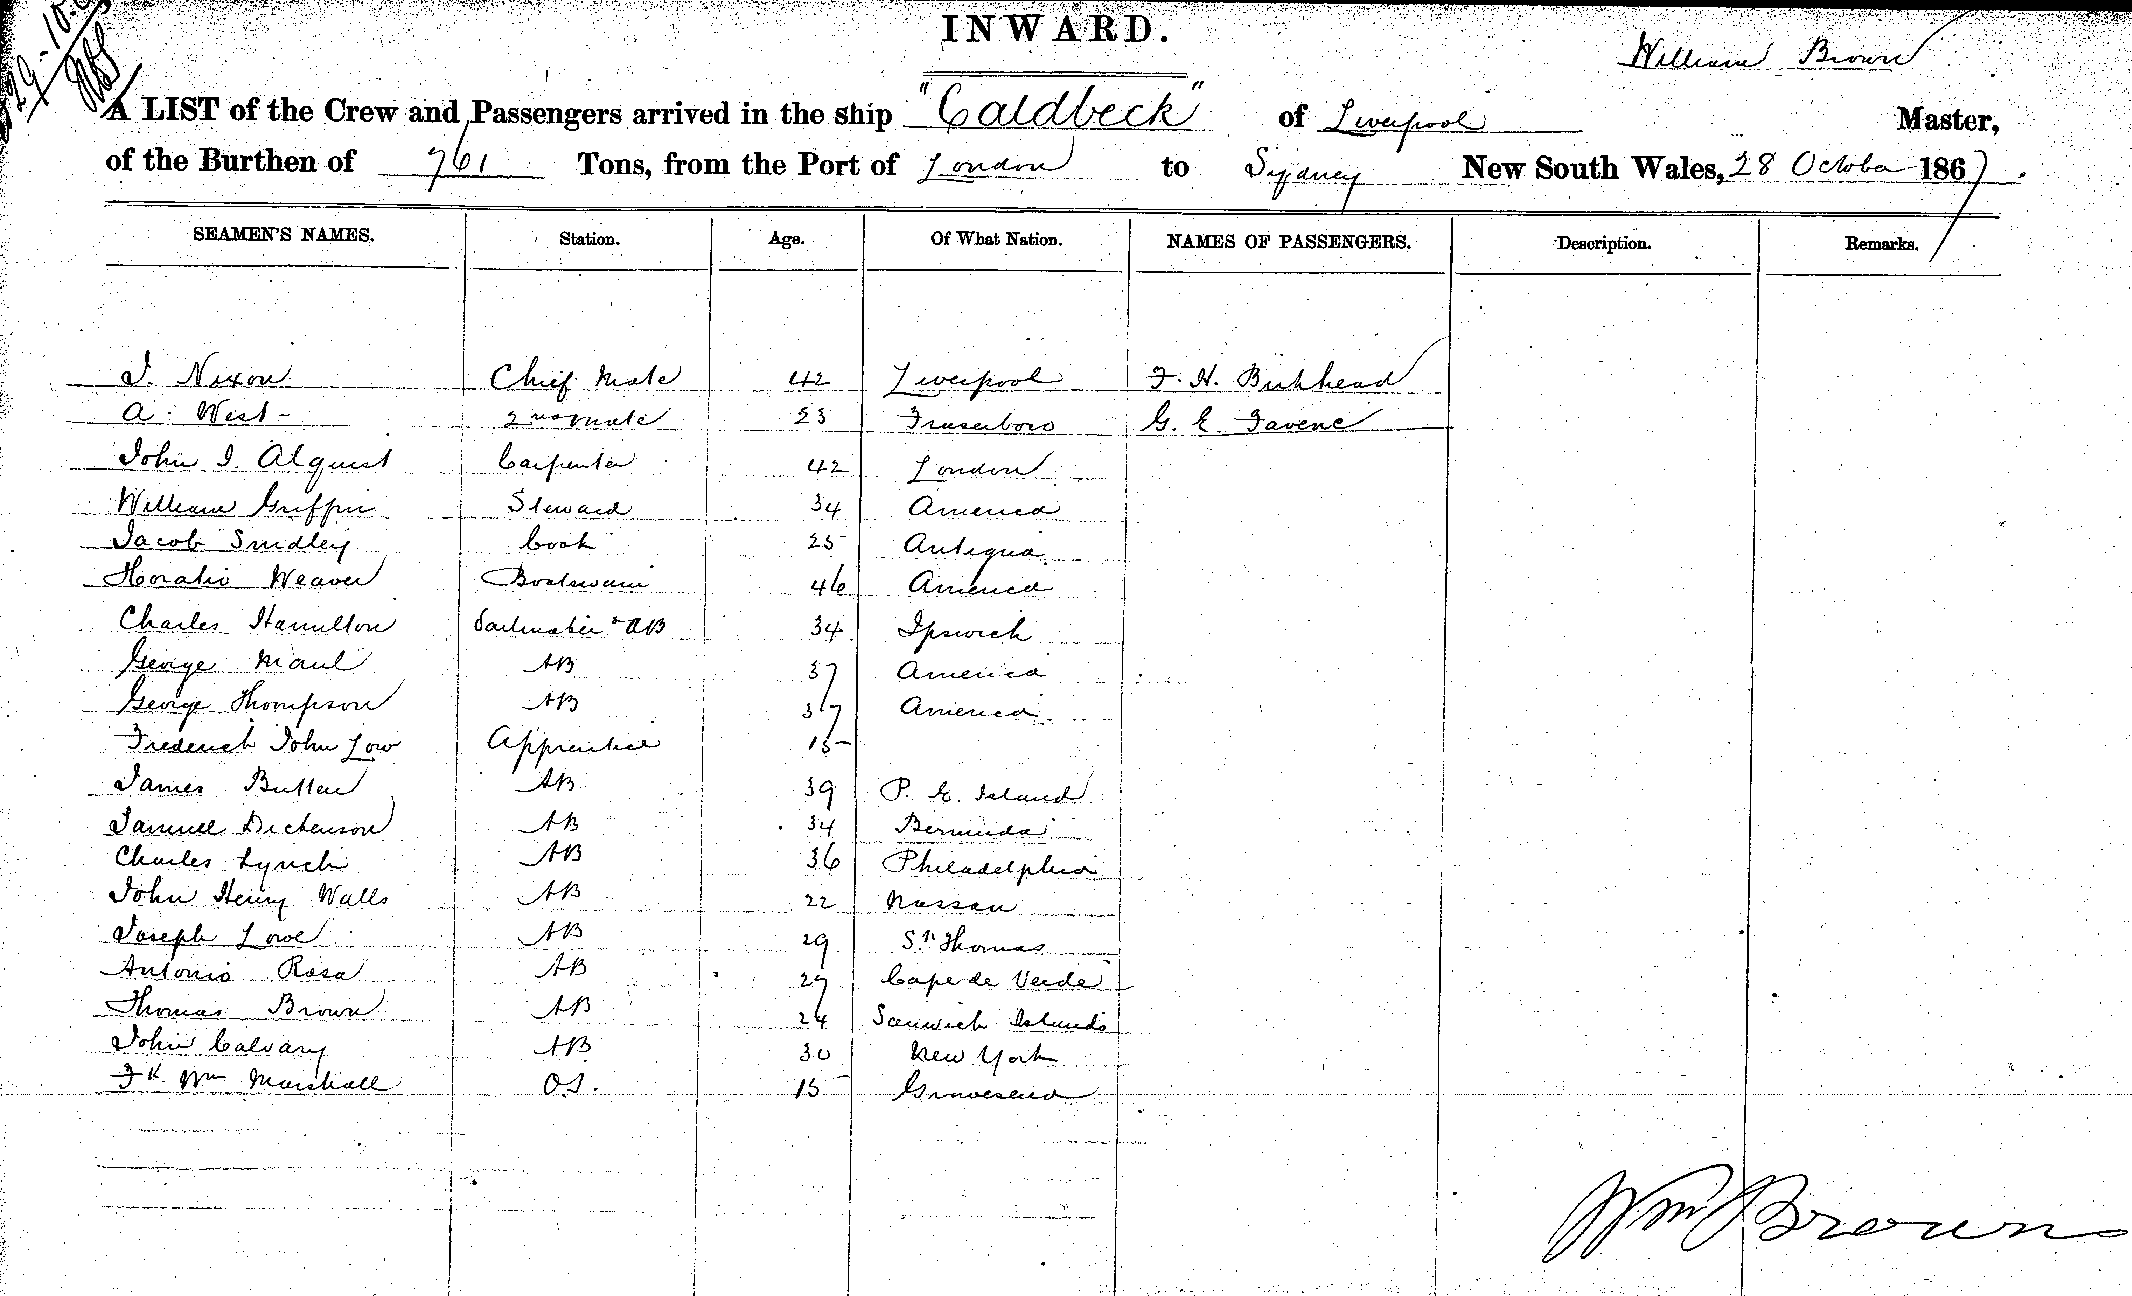 29-10-6
INWARD.
William Brown
A LIST of the Crew and Passengers arrived in the ship "Caldbeck" of Liverpool Master,
of the Burthen of 761 Tons, from the Port of London to Sydney New South Wales, 28 October 1867.
SEAMEN'S NAMES. Station. Age. Of What Nation. NAMES OF PASSENGERS. Description. Remarks.
J. Nixon Chief Mate 42 Liverpool F. H. Birkhead
A. West 2nd Mate 23 Fraserboro G. E. Favenc
John J. Alquist Carpenter 42 London
William Griffin Steward 34 America
Jacob Smidley Cook 25 Antigua
Horatio Weaver Boatswain 46 America
Charles Hamilton Sailmaker & AB 34 Ipswich
George Maul AB 37 America
George Thompson AB 37 America
Frederick John Low Apprentice 15
James Butler AB 39 P. E. Island
Samuel Dickenson AB 34 Bermuda
Charles Lynch AB 36 Philadelphia
John Henry Walls AB 22 Nassau
Joseph Lowe AB 29 St Thomas
Antonio Rosa AB 27 Cape de Verde
Thomas Brown AB 24 Sanwich Islands
John Calvary AB 30 New York
Fk Wm Marshall OS. 15 Gravesend
Wm Brown